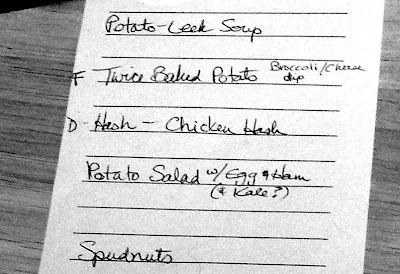 Potato-Leek Soup
F Twice Baked Potato Broccoli/Cheese
dip
D- Hash - Chicken Hash
Potato Salad w/Egg & Ham
(& Kale?)
Spudnuts